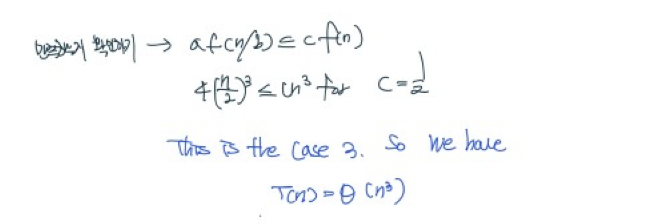 → af(n/b) ≤ cf(n)
4(n/2)³ ≤ cn³ for c = 1/2
This is the case 3. So we have
T(n) = Θ(n³)